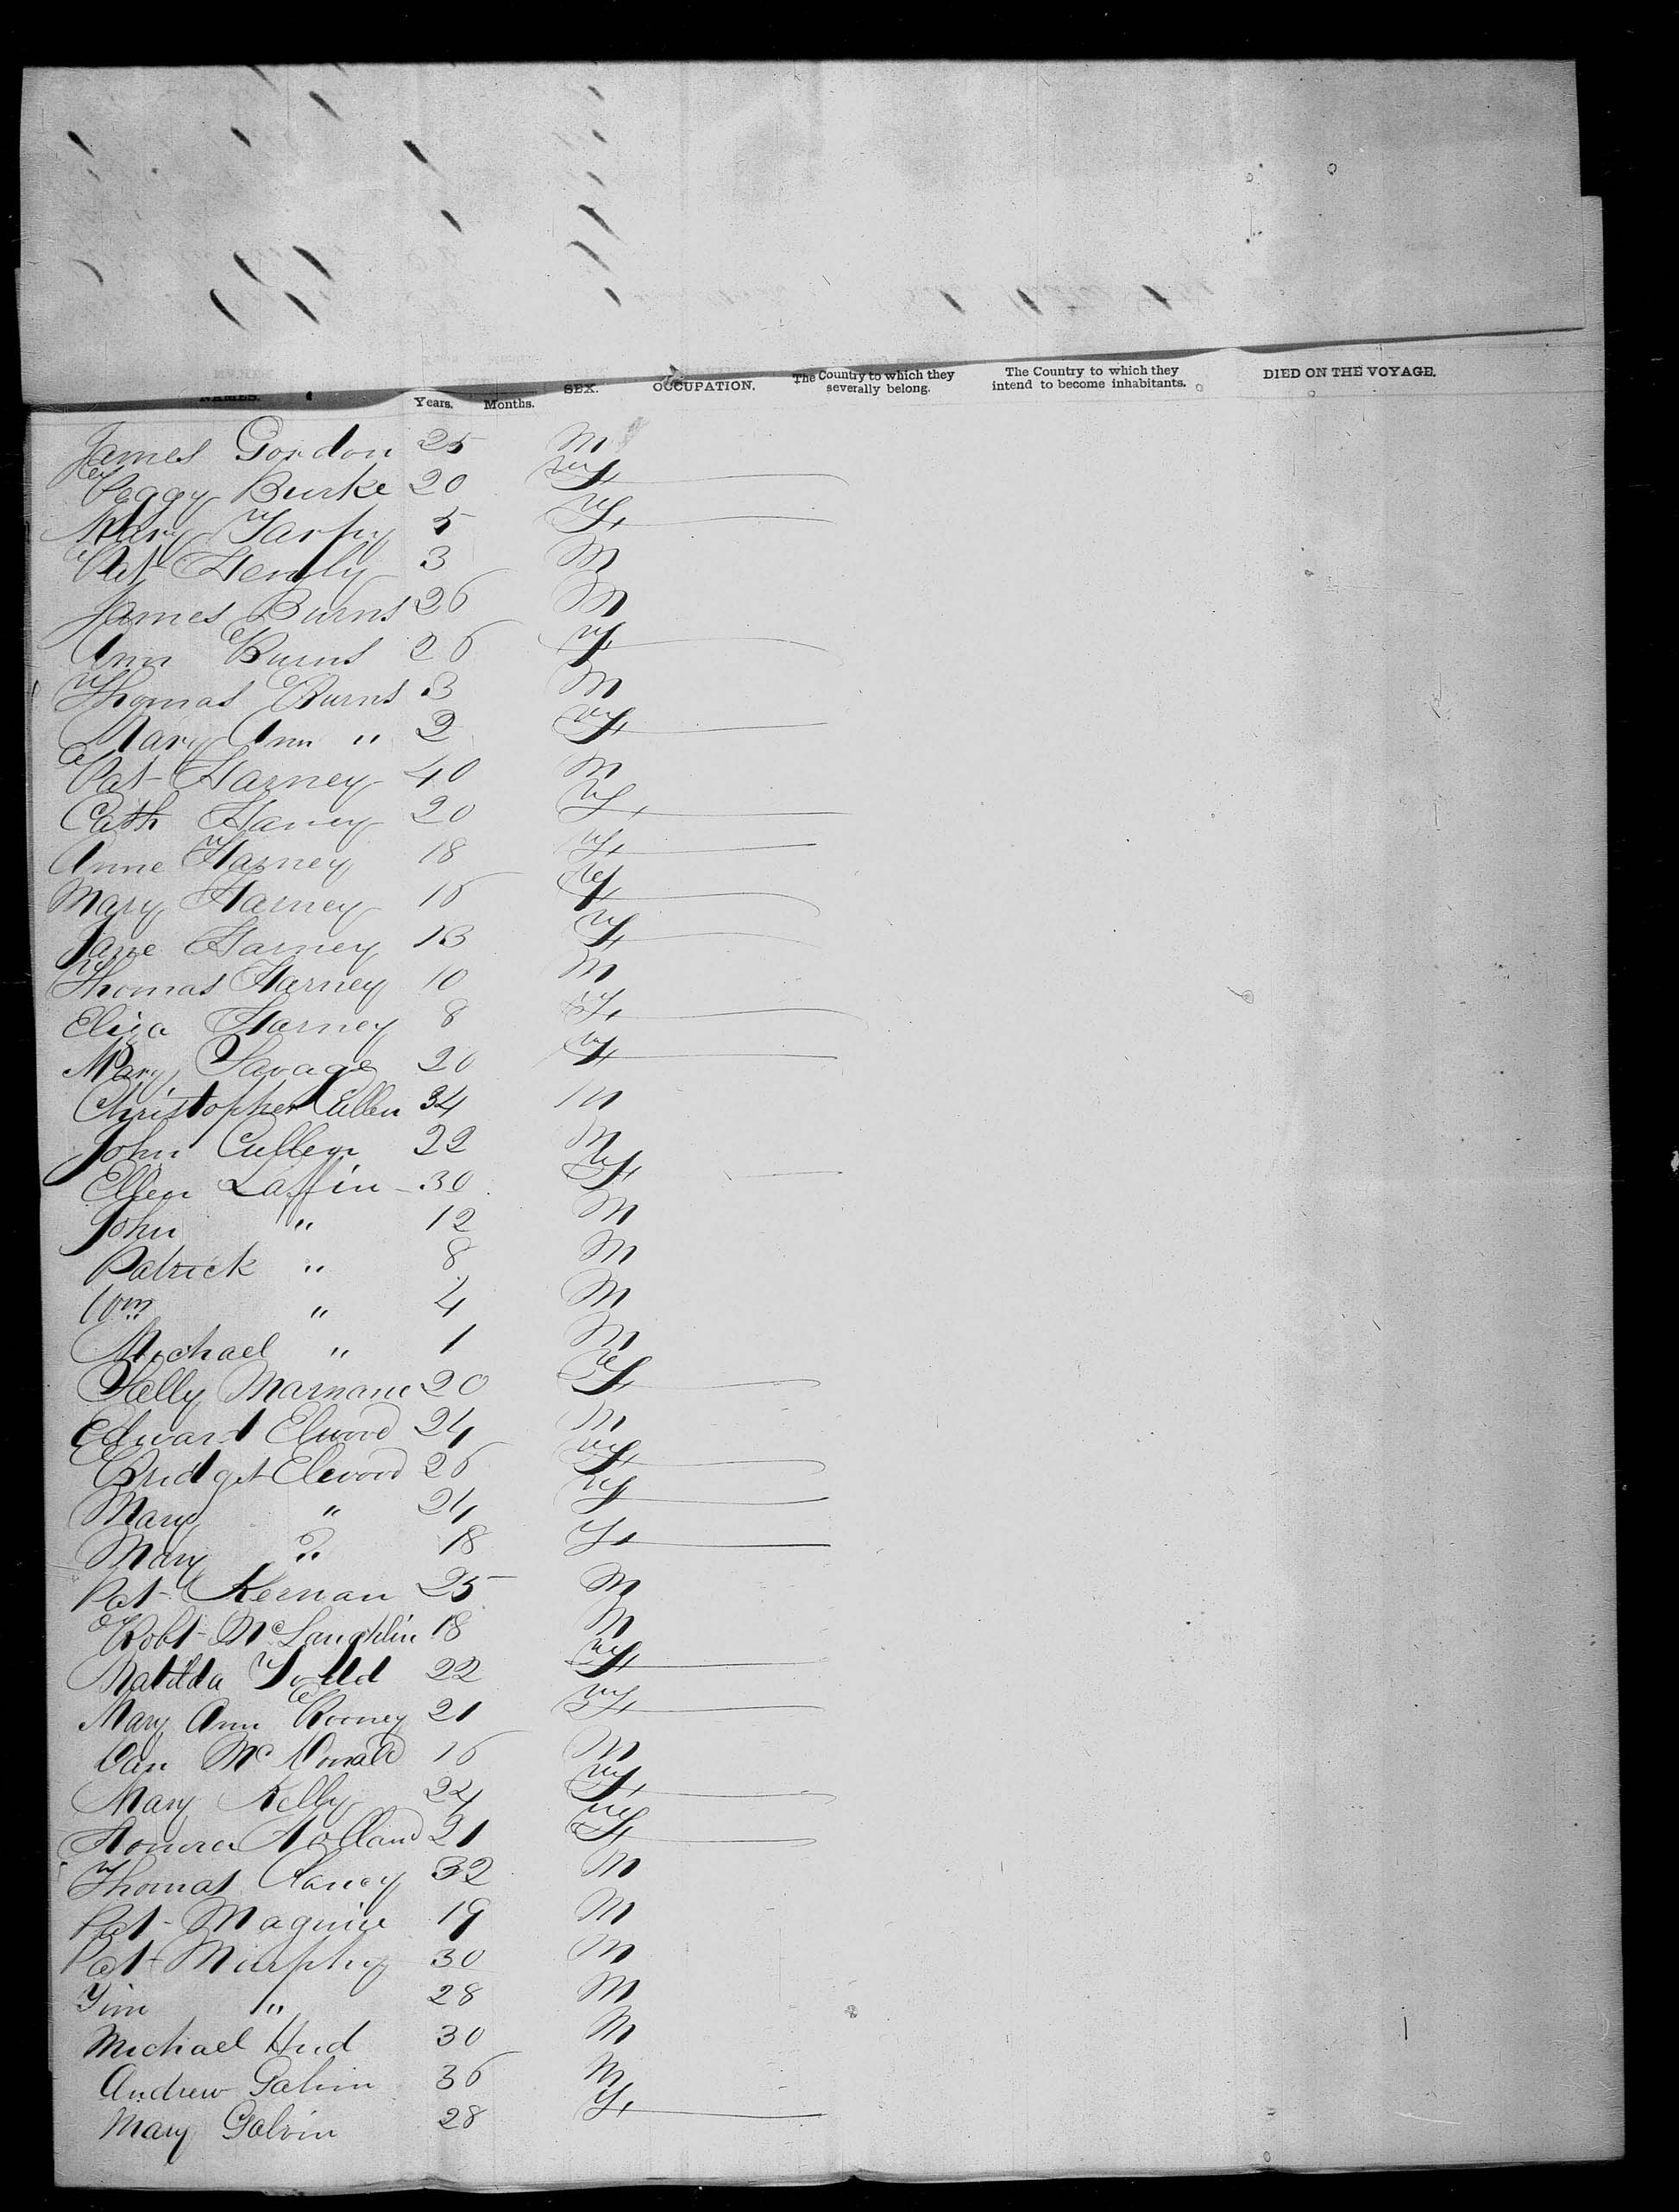 NAMES. Years. Months. SEX. OCCUPATION. The Country to which they severally belong. The Country to which they intend to become inhabitants. DIED ON THE VOYAGE.
James Gordon 25 M
Peggy Burke 20 F
Mary Tarpy 5 F
Pat Henply 3 M
James Burns 26 M
Ann Burns 26 F
Thomas Burns 3 M
Mary Ann " 2 F
Pat Harney 40 M
Cath Harney 20 F
Anne Harney 18 F
Mary Harney 16 F
Jane Harney 13 F
Thomas Harney 10 M
Eliza Harney 8 F
Mary Savage 20 F
Christopher Cullen 34 M
John Cullen 22 M
Ellen Laffin 30 F
John " 12 M
Patrick " 8 M
Wm " 4 M
Michael " 1 M
Sally Marnane 20 F
Edward Elwood 24 M
Bridget Elwood 26 F
Mary " 24 F
Mary " 18 F
Pat Kernan 25 M
Robt McLaughlin 18 M
Matilda Todd 22 F
Mary Ann Rooney 21 F
Dan McDonald 16 M
Mary Kelly 24 F
Honora Holland 21 F
Thomas Clancy 32 M
Pat Maguire 19 M
Pat Murphy 30 M
Tim " 28 M
Michael Hud 30 M
Andrew Galvin 36 M
Mary Galvin 28 F